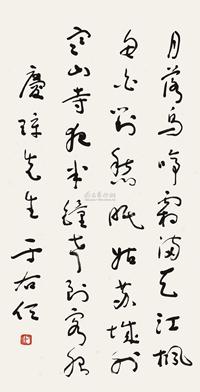 月落烏啼霜滿天江楓
漁火對愁眠姑蘇城外
寒山寺夜半鐘聲到客船
慶璋先生 于右任